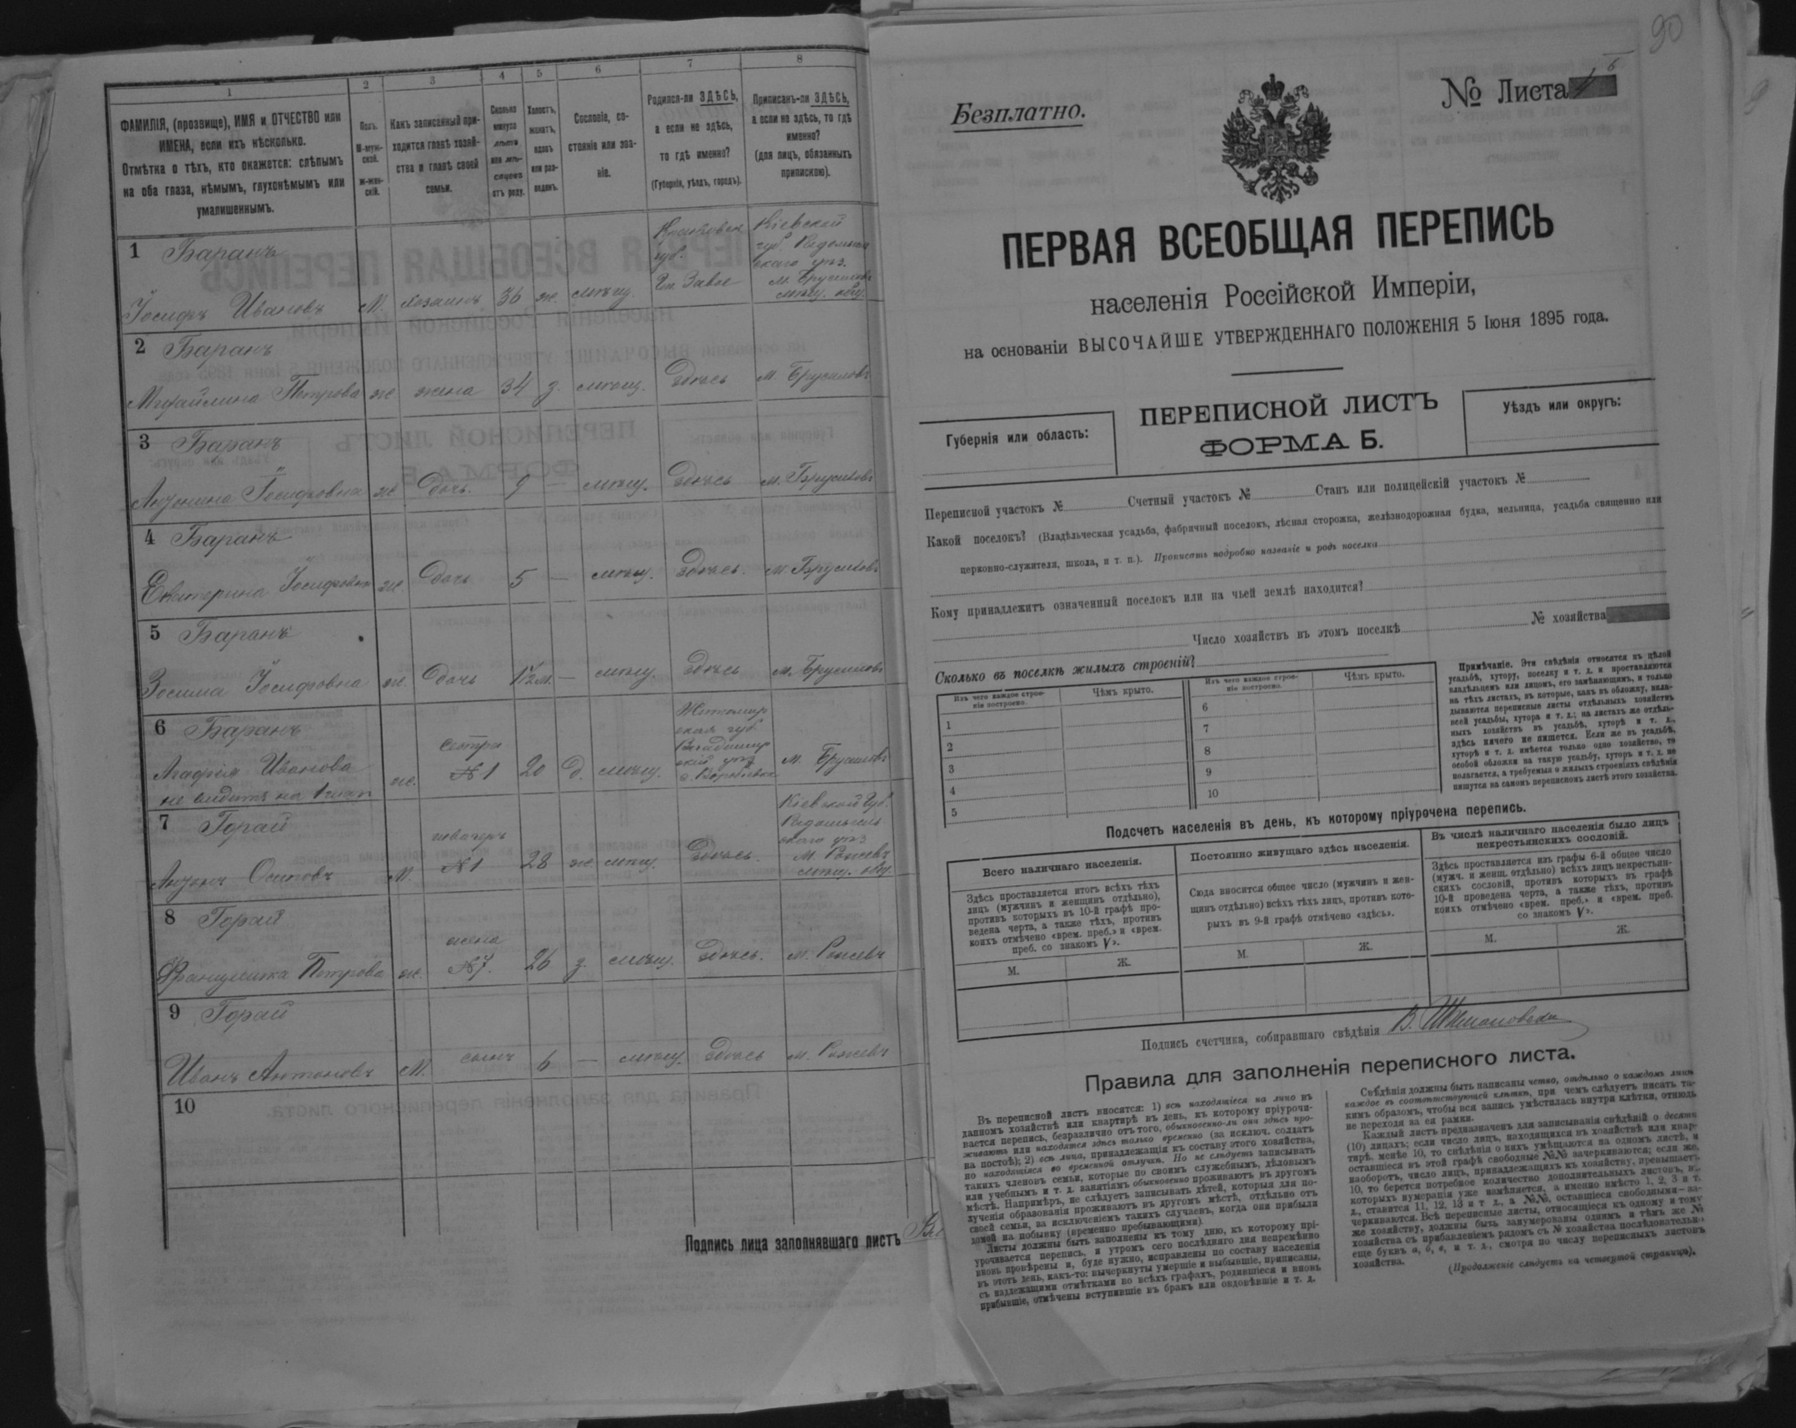 1 2 3 4 5 6 7 8
ФАМИЛІЯ, (прозвище), ИМЯ и ОТЧЕСТВО или
ИМЕНА, если ихъ нѣсколько.
Отмѣтка о тѣхъ, кто окажется: слѣпымъ
на оба глаза, нѣмымъ, глухонѣмымъ или
умалишеннымъ.
Полъ.
М-муж-
ской.
Ж-жен-
скій.
Какъ записанный при-
ходится главѣ хозяй-
ства и главѣ своей
семьи.
Сколько
минуло
лѣтъ
или мѣ-
сяцевъ
отъ роду.
Холостъ,
женатъ,
вдовъ
или раз-
веденъ.
Сословіе, со-
стояніе или зва-
ніе.
Родился-ли ЗДѢСЬ,
а если не здѣсь,
то гдѣ именно?
(Губернія, уѣздъ, городъ).
Приписанъ-ли ЗДѢСЬ,
а если не здѣсь, то гдѣ
именно?
(для лицъ, обязанныхъ
припискою).
1 Баранъ
Іосифъ Ивановъ М. хозяинъ 36 ж. мѣщ.
Кіевской
губ.
м. Брусиловъ
мѣщ. общ.
2 Баранъ
Петрова ж жена 34 з. мѣщ. здѣсь м. Брусиловъ
3 Баранъ
Антонина Іосифовна ж Дочь 9 — мѣщ. здѣсь м. Брусиловъ
4 Баранъ
Екатерина Іосифовна ж. Дочь 5 — мѣщ. здѣсь м. Брусиловъ
5 Баранъ
Іосифовна ж Дочь — мѣщ. здѣсь м. Брусиловъ
6 Баранъ
Агафія Иванова ж. сестра №1 20 д. мѣщ. м. Брусиловъ
Житомир
ская губ.
не видитъ на 1 глаз
7 Горай
Антонъ Осиповъ М. №1 28 ж. мѣщ. здѣсь.
Кіевской губ.
Радомысль
скаго уѣз.
м. Рожевъ
мѣщ. общ.
8 Горай
Петрова ж. жена №7. 26 з. мѣщ. здѣсь. м. Рожевъ
9 Горай
Иванъ Антоновъ М. сынъ 6 — мѣщ. здѣсь м. Рожевъ
10
Подпись лица заполнявшаго листъ
90
Безплатно.
№ Листа 1 б
ПЕРВАЯ ВСЕОБЩАЯ ПЕРЕПИСЬ
населенія Россійской Имперіи,
на основаніи ВЫСОЧАЙШЕ УТВЕРЖДЕННАГО ПОЛОЖЕНІЯ 5 Іюня 1895 года.
Губернія или область:
ПЕРЕПИСНОЙ ЛИСТЪ
ФОРМА Б.
Уѣздъ или округъ:
Переписной участокъ № Счетный участокъ № Станъ или полицейскій участокъ №
Какой поселокъ? (Владѣльческая усадьба, фабричный поселокъ, лѣсная сторожка, желѣзнодорожная будка, мельница, усадьба священно или
церковно-служителя, школа, и т. п.). Прописать подробно названіе и родъ поселка
Кому принадлежитъ означенный поселокъ или на чьей землѣ находится?
Число хозяйствъ въ этомъ поселкѣ № хозяйства
Сколько въ поселкѣ жилыхъ строеній?
Изъ чего каждое строе-
ніе построено.
Чѣмъ крыто.
Изъ чего каждое строе-
ніе построено.
Чѣмъ крыто.
1 6
2 7
3 8
4 9
5 10
Примѣчаніе. Эти свѣдѣнія относятся къ цѣлой
усадьбѣ, хутору, поселку и т. д. и проставляются
владѣльцемъ или лицомъ, его замѣняющимъ, и только
на тѣхъ листахъ, въ которые, какъ въ обложку, вкла-
дываются переписные листы отдѣльныхъ хозяйствъ
всей усадьбы, хутора и т. д.; на листахъ же отдѣль-
ныхъ хозяйствъ въ усадьбѣ, хуторѣ и т. д.,
здѣсь ничего не пишется. Если же въ усадьбѣ,
хуторѣ и т. д. имѣется только одно хозяйство, то
особой обложки на такую усадьбу, хуторъ и т. д. не
полагается, а требуемыя о жилыхъ строеніяхъ свѣдѣнія
пишутся на самомъ переписномъ листѣ этого хозяйства.
Подсчетъ населенія въ день, къ которому пріурочена перепись.
Всего наличнаго населенія.
Здѣсь проставляется итогъ всѣхъ тѣхъ
лицъ (мужчинъ и женщинъ отдѣльно),
противъ которыхъ въ 10-й графѣ про-
ведена черта, а также тѣхъ, противъ
коихъ отмѣчено «врем. преб.» и «врем.
преб. со знакомъ V».
М. Ж.
Постоянно живущаго здѣсь населенія.
Сюда вносится общее число (мужчинъ и жен-
щинъ отдѣльно) всѣхъ тѣхъ лицъ, противъ кото-
рыхъ въ 9-й графѣ отмѣчено «здѣсь».
М. Ж.
Въ числѣ наличнаго населенія было лицъ
некрестьянскихъ сословій.
Здѣсь проставляется изъ графы 6-й общее число
(мужч. и женщ. отдѣльно) всѣхъ лицъ некрестьян-
скихъ сословій, противъ которыхъ въ графѣ
10-й проведена черта, а также тѣхъ, противъ
коихъ отмѣчено «врем. преб.» и «врем. преб.
со знакомъ V».
М. Ж.
Подпись счетчика, собиравшаго свѣдѣнія
Правила для заполненія переписного листа.
Въ переписной листъ вносятся: 1) всѣ находящіеся на лицо въ
данномъ хозяйствѣ или квартирѣ въ день, къ которому пріурочи-
вается перепись, безразлично отъ того, обыкновенно-ли они здѣсь про-
живаютъ или находятся здѣсь только временно (за исключ. солдатъ
на постоѣ); 2) всѣ лица, принадлежащія къ составу этого хозяйства,
но находящіяся во временной отлучкѣ. Но не слѣдуетъ записывать
такихъ членовъ семьи, которые по своимъ служебнымъ, дѣловымъ
или учебнымъ и т. д. занятіямъ обыкновенно проживаютъ въ другомъ
мѣстѣ. Напримѣръ, не слѣдуетъ записывать дѣтей, которыя для по-
лученія образованія проживаютъ въ другомъ мѣстѣ, отдѣльно отъ
своей семьи, за исключеніемъ такихъ случаевъ, когда они прибыли
домой на побывку (временно пребывающими).
Листы должны быть заполнены къ тому дню, къ которому прі-
урочивается перепись, и утромъ сего послѣдняго дня непремѣнно
вновь провѣрены и, буде нужно, исправлены по составу населенія
въ этотъ день, какъ-то: вычеркнуты умершіе и выбывшіе, приписаны,
съ надлежащими отмѣтками во всѣхъ графахъ, родившіеся и вновь
прибывшіе, отмѣчены вступившіе въ бракъ или овдовѣвшіе и т. д.
Свѣдѣнія должны быть написаны четко, отдѣльно о каждомъ лицѣ
каждое въ соотвѣтствующей клѣткѣ, при чемъ слѣдуетъ писать та-
кимъ образомъ, чтобы вся запись умѣстилась внутри клѣтки, отнюдь
не переходя за ея рамки.
Каждый листъ предназначенъ для записыванія свѣдѣній о десяти
(10) лицахъ; если число лицъ, находящихся въ хозяйствѣ или квар-
тирѣ, менѣе 10, то свѣдѣнія о нихъ умѣщаются на одномъ листѣ, и
оставшіеся въ этой графѣ свободные №№ зачеркиваются; если же,
наоборотъ, число лицъ, принадлежащихъ къ хозяйству, превышаетъ
10, то берется потребное количество дополнительныхъ листовъ, въ
которыхъ нумерація уже измѣняется, а именно вмѣсто 1, 2, 3 и т.
д., ставится 11, 12, 13 и т. д., а №№, оставшіеся свободными—за-
черкиваются. Всѣ переписные листы, относящіеся къ одному и тому
же хозяйству, должны быть занумерованы однимъ и тѣмъ же №
хозяйства съ прибавленіемъ рядомъ съ № хозяйства послѣдовательно
еще буквъ а, б, в, и т. д., смотря по числу переписныхъ листовъ
хозяйства.
(Продолженіе слѣдуетъ на четвертой страницѣ).